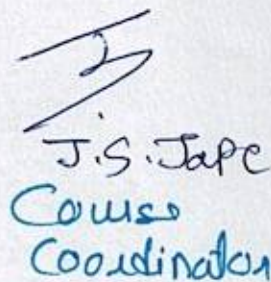 J.S. Jape
Course
Coordinator